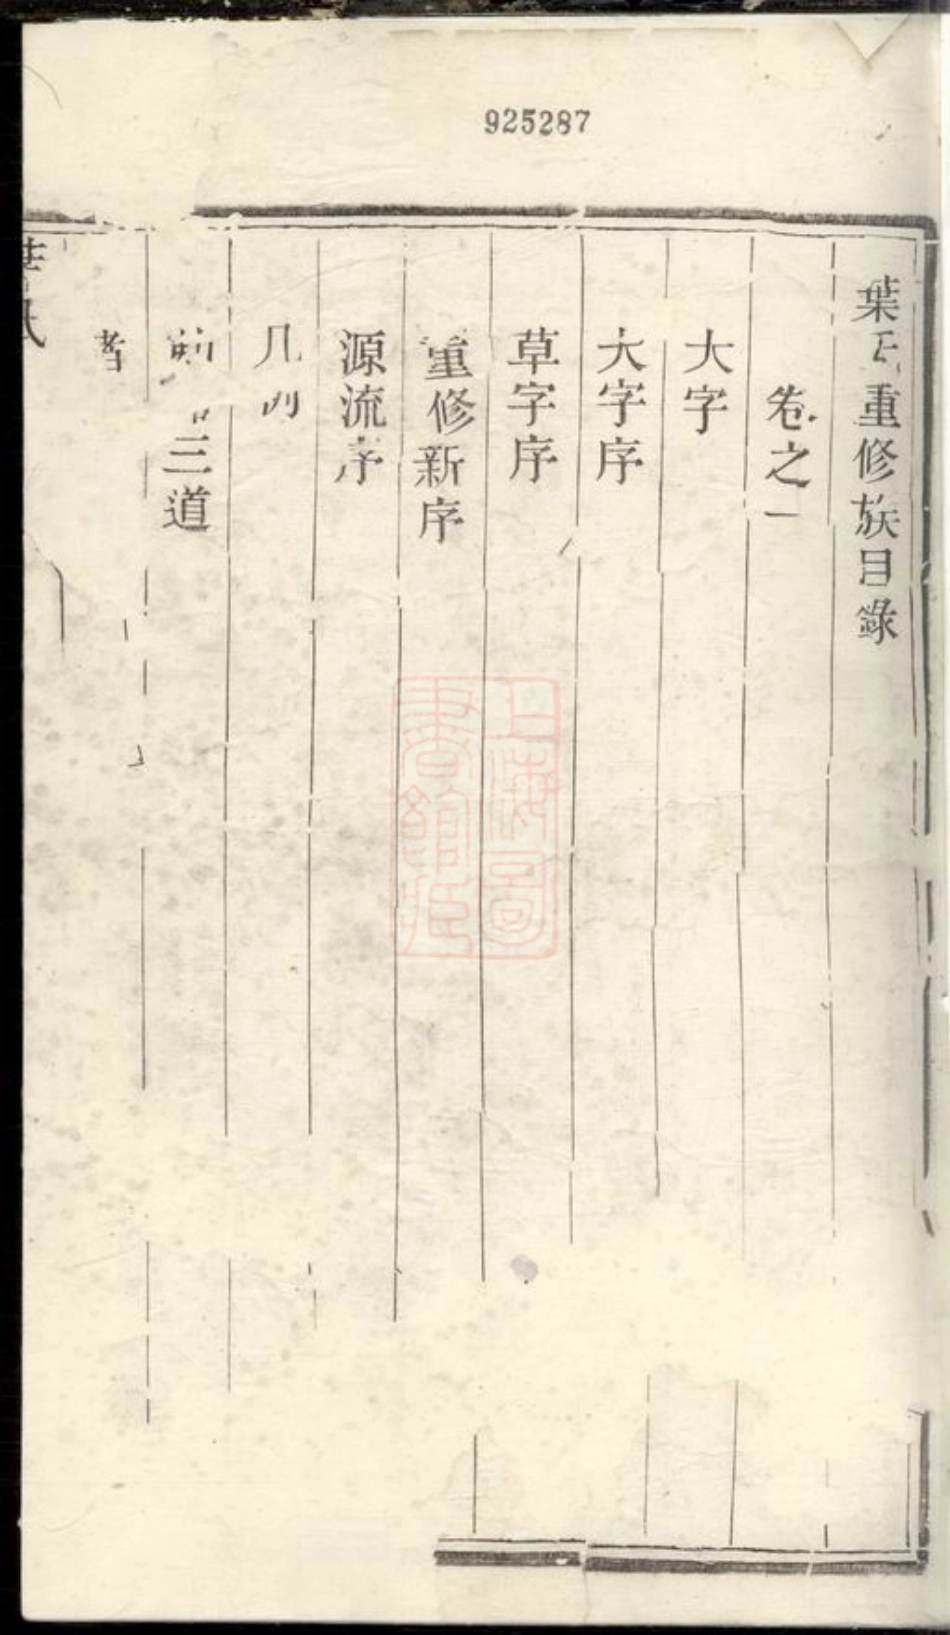 925287
葉氏重修族目錄
卷之一
大字
大字序
草字序
重修新序
源流序
凡例
三道
葉氏
上海圖書館藏